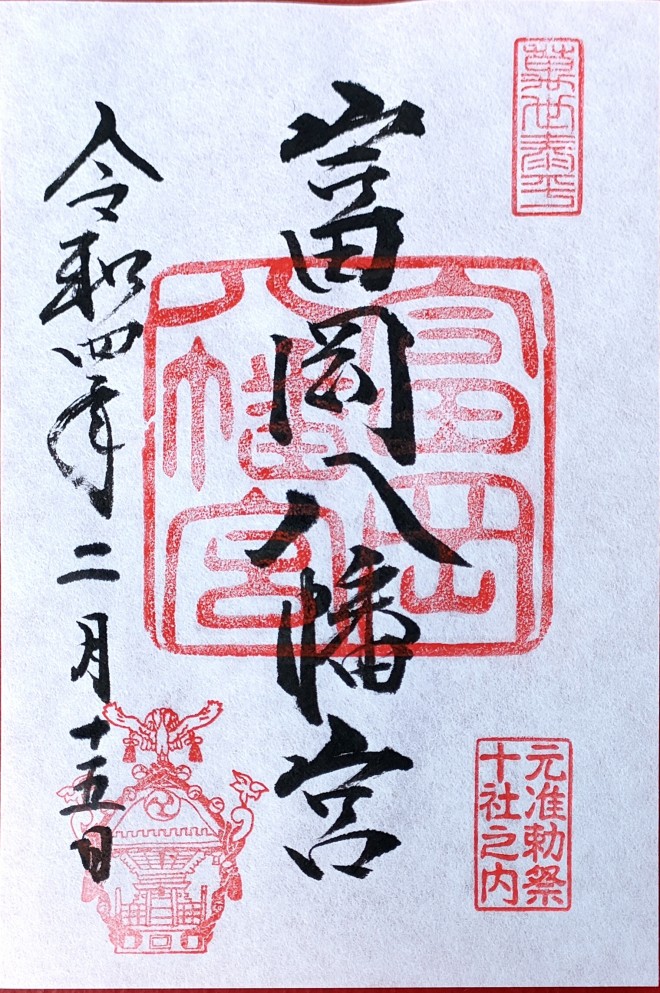 元准勅祭
十社之内
富岡八幡宮
富岡
八幡宮
令和四年二月十五日